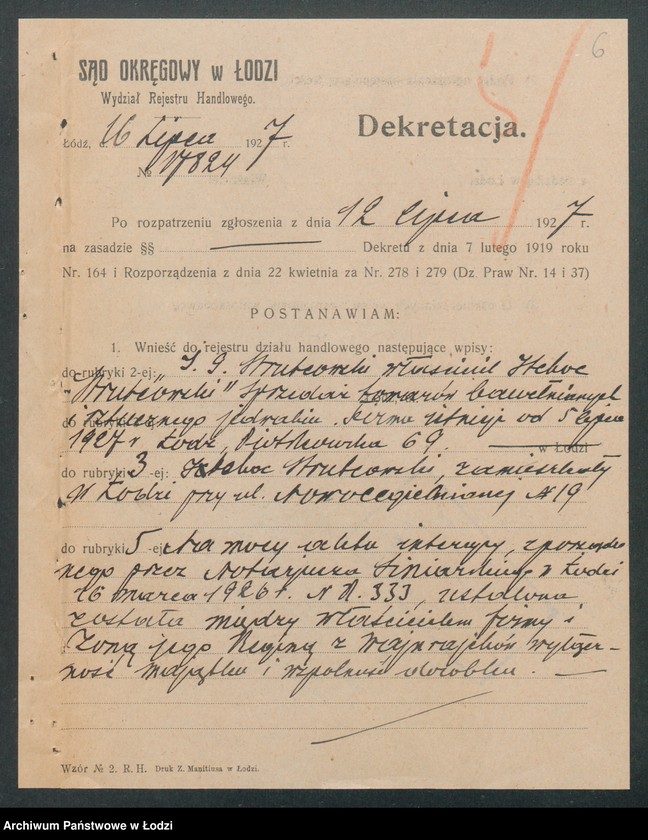 6
SĄD OKRĘGOWY w ŁODZI
Wydział Rejestru Handlowego.
Dekretacja.
Łódź, d. 16 Lipca 1927 r.
№ 17824
Po rozpatrzeniu zgłoszenia z dnia 12 lipca 1927 r.
na zasadzie §§ — Dekretu z dnia 7 lutego 1919 roku
Nr. 164 i Rozporządzenia z dnia 22 kwietnia za Nr. 278 i 279 (Dz. Praw Nr. 14 i 37)
POSTANAWIAM:
1. Wnieść do rejestru działu handlowego następujące wpisy:
do rubryki 2-ej: właściciel
sprzedaż towarów bawełnianych
i sztucznego jedwabiu. Firma istnieje od 5 lipca
1927 r. Łódź, Piotrkowska 69. w Łodzi
do rubryki 3-ej: zamieszkały
w Łodzi przy ul. Nowocegielnianej № 19
do rubryki 5-ej: Na mocy aktu intercyzy,
nego przez Notarjusza w Łodzi
16 marca 1926 r. N R. 333, ustalona
została między właścicielem firmy i
żoną jego Reginą z wyłącz-
ność majątku i wspólność dorobku. —
Wzór № 2. R. H. Druk Z. Manitiusa w Łodzi.
Archiwum Państwowe w Łodzi